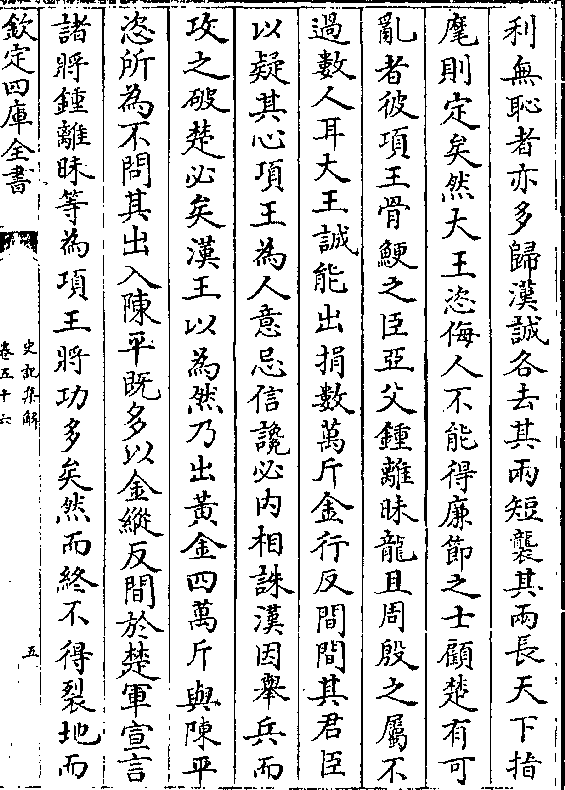 利無恥者亦多歸漢誠各去其兩短襲其兩長天下指
麾則定矣然大王恣侮人不能得廉節之士顧楚有可
亂者彼項王骨鯁之臣亞父鍾離昧龍且周殷之屬不
過數人耳大王誠能出捐數萬斤金行反間間其君臣
以疑其心項王為人意忌信讒必内相誅漢因舉兵而
攻之破楚必矣漢王以為然乃出黃金四萬斤與陳平
恣所為不問其出入陳平既多以金縱反間於楚軍宣言
諸將鍾離昧等為項王將功多矣然而終不得裂地而
欽定四庫全書
史記集解
卷五十六
五